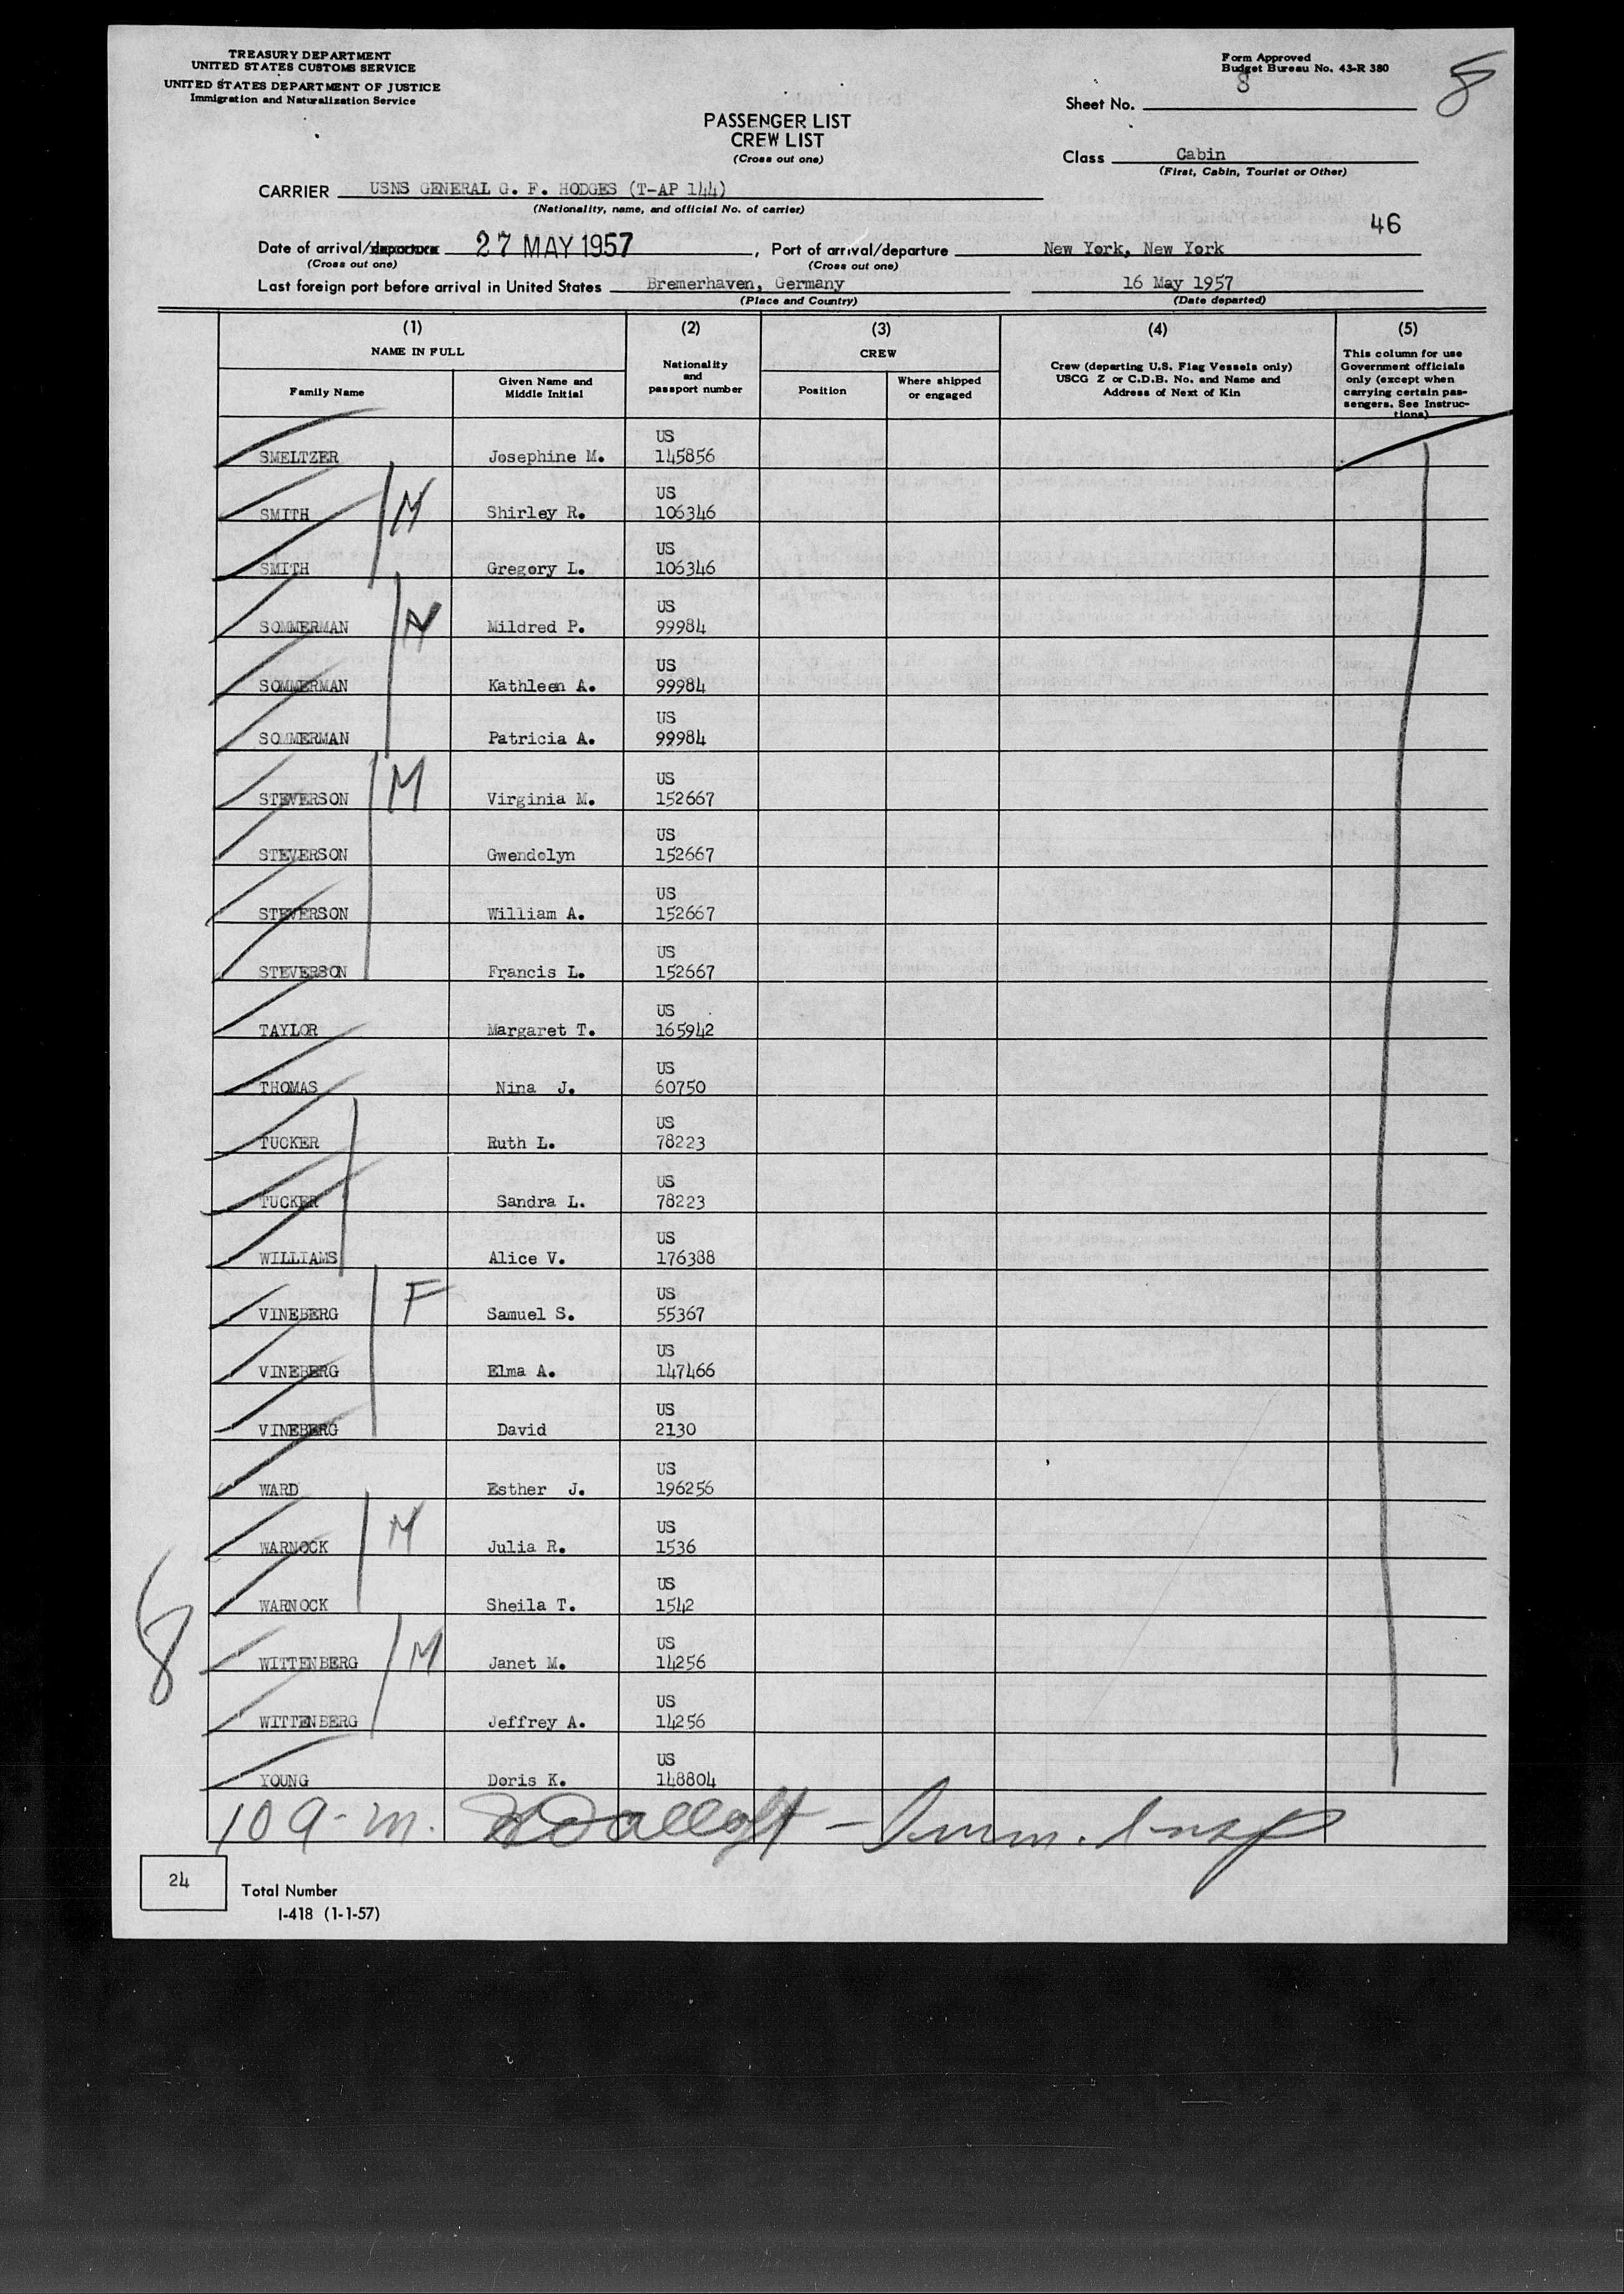 TREASURY DEPARTMENT
UNITED STATES CUSTOMS SERVICE
UNITED STATES DEPARTMENT OF JUSTICE
Immigration and Naturalization Service
Form Approved
Budget Bureau No. 43-R 380
8
Sheet No. 8
PASSENGER LIST
CREW LIST
(Cross out one)
Class Cabin
(First, Cabin, Tourist or Other)
CARRIER USNS GENERAL G. F. HODGES (T-AP 144)
(Nationality, name, and official No. of carrier)
46
Date of arrival/departure 27 MAY 1957, Port of arrival/departure New York, New York
(Cross out one) (Cross out one)
Last foreign port before arrival in United States Bremerhaven, Germany 16 May 1957
(Place and Country) (Date departed)
(1) (2) (3) (4) (5)
NAME IN FULL
Family Name
Given Name and
Middle Initial
Nationality
and
passport number
CREW
Position
Where shipped
or engaged
Crew (departing U.S. Flag Vessels only)
USCG Z or C.D.B. No. and Name and
Address of Next of Kin
This column for use
Government officials
only (except when
carrying certain pas-
sengers. See Instruc-
tions)
US
SMELTZER Josephine M. 145856
US
SMITH M Shirley R. 106346
US
SMITH Gregory L. 106346
US
SOMMERMAN M Mildred P. 99984
US
SOMMERMAN Kathleen A. 99984
US
SOMMERMAN Patricia A. 99984
US
STEVERSON M Virginia M. 152667
US
STEVERSON Gwendolyn 152667
US
STEVERSON William A. 152667
US
STEVERSON Francis L. 152667
US
TAYLOR Margaret T. 165942
US
THOMAS Nina J. 60750
US
TUCKER Ruth L. 78223
US
TUCKER Sandra L. 78223
US
WILLIAMS Alice V. 176388
US
VINEBERG F Samuel S. 55367
US
VINEBERG Elma A. 147466
US
VINEBERG David 2130
US
WARD Esther J. 196256
US
WARNOCK M Julia R. 1536
US
WARNOCK Sheila T. 1542
US
WITTENBERG M Janet M. 14256
US
WITTENBERG Jeffrey A. 14256
US
YOUNG Doris K. 148804
8
10 a.m. - Imm. Insp
24
Total Number
I-418 (1-1-57)